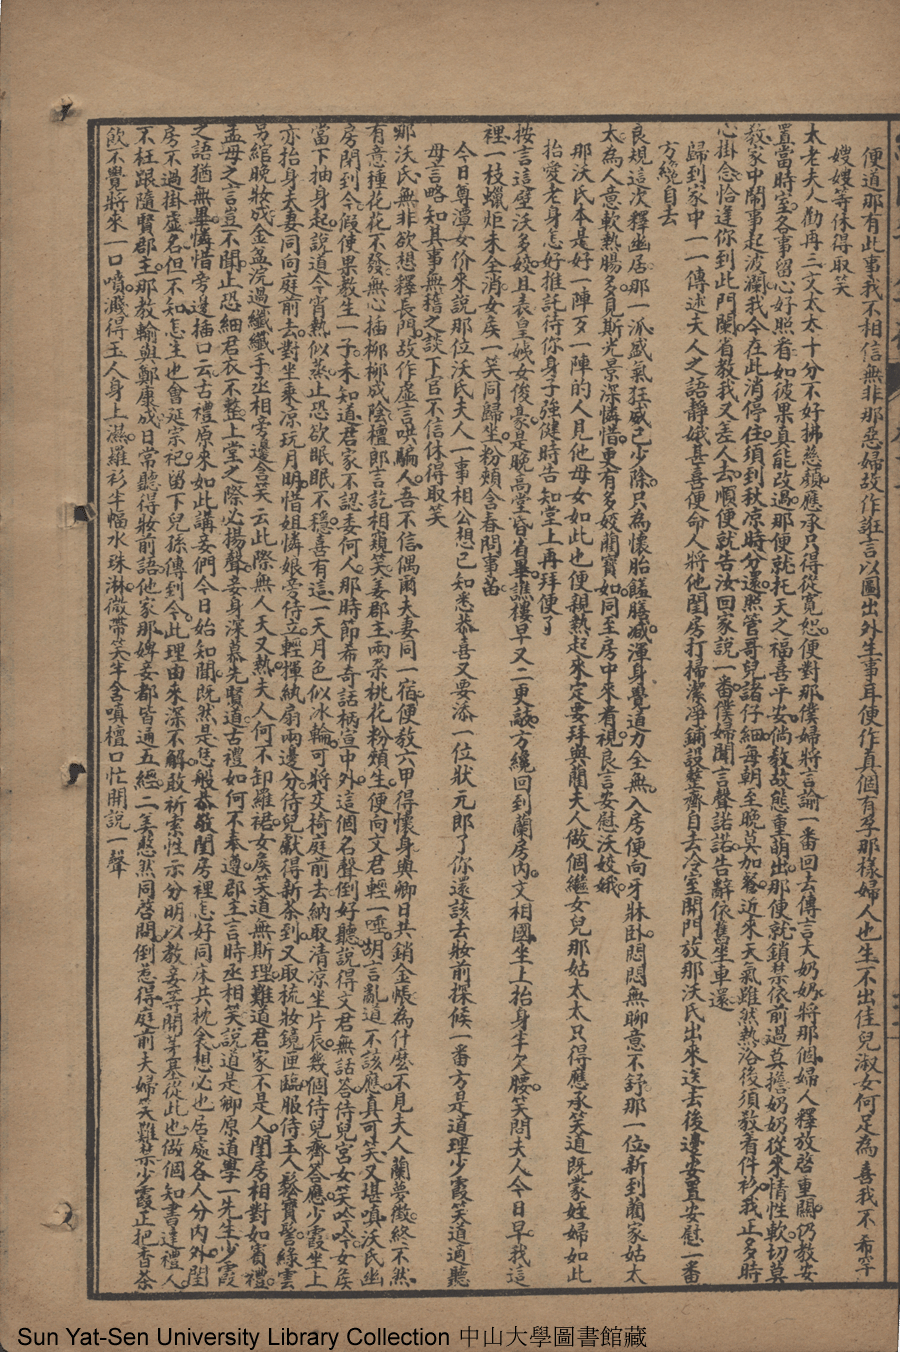 便道那有此事我不相信無非那惡婦故作誑言以圖出外生事耳便作真個有孕那樣婦人也生不出佳兒淑女何足為喜我不希罕
嫂嫂等休得取笑
太老夫人勸再三文太太十分不好拂慈顏應承只得從寬恕便對那僕婦將言諭一番回去傳言大奶奶將那個婦人釋放啓重關仍教安
置當時室各事留心好照看如彼果真能改過那便就托天之福喜平安倘教故態重萌出那便就鎖禁依前過莫擔奶奶從來情性軟切莫
教家中鬧事起波瀾我今在此消停住須到秋凉時分還照管哥兒諸仔細每朝至晚莫加餐近來天氣雖然熱浴後須教着件衫我正多時
心掛念恰逢你到此門闌省教我又差人去順便就告汝回家說一番僕婦聞言聲諾諾告辭依舊坐車還
歸到家中一一傳述夫人之語靜娥甚喜便命人將他閨房打掃潔淨鋪設整齊自去冷室開門放那沃氏出來送去後邊安置安慰一番
方纔自去
良規這次釋幽居那一派盛氣狂威已少除只為懷胎饈膳减渾身覺道力全無入房便向牙牀卧悶悶無聊意不舒那一位新到藺家姑太
太為人意軟熱腸多見斯光景深憐惜更有多姣藺寶如同至房中來看視良言安慰沃姣娥
那沃氏本是好一陣歹一陣的人見他母女如此也便親熱起來定要拜與藺夫人做個繼女兒那姑太太只得應承笑道既蒙姪婦如此
抬愛老身怎好推託待你身子強健時告知堂上再拜便了
按言這壁沃多姣且表皇姨女俊豪是晚高堂昏省畢譙樓早又二更敲方纔回到蘭房内文相國坐上抬身半欠腰笑問夫人今日早我這
裡一枝蠟炬未全消女矦一笑同歸坐粉頰含春問事苗
今日尊澶女价來說那位沃氏夫人一事相公想已知悉恭喜又要添一位狀元郎了你還該去妝前探候一番方是道理少霞笑道適聽
母言略知其事無稽之談下官不信休得取笑
那沃氏無非欲想釋長門故作虛言哄騙人吾不信偶爾夫妻同一宿便教六甲得懷身與卿日共銷金帳為什麽不見夫人蘭夢徵終不然
有意種花花不發無心插柳柳成陰檀郎言訖相窺笑姜郡主兩朶桃花粉頰生便向文君輕一唾胡言亂道不該應真可笑又堪嗔沃氏幽
房閉到今假使果教生一子未知道君家不認委何人那時節希奇話柄宣中外這個名聲倒好聽說得文君無話答侍兒宮女笑吟吟女矦
當下抽身起說道今宵熱似蒸止恐欲眠眠不穩喜有這一天月色似冰輪可將交椅庭前去納取清凉坐片辰幾個侍兒齊答應少霞坐上
亦抬身夫妻同向庭前去對坐乘凉玩月明惜姐憐娘旁侍立輕揮紈扇兩邊分侍兒獻得新茶到又取梳妝鏡匣臨服侍玉人鬆寶髻綠雲
另綰晚妝成金盃浣過纖纖手丞相旁邊含笑云此際無人天又熱夫人何不卸羅裙女矦笑道無斯理難道君家不是人閨房相對如賓禮
孟母之言豈不聞止恐細君衣不整上堂之際必揚聲妾身深慕先賢道古禮如何不奉遵郡主言時丞相笑說道是卿原道學一先生少霞
之語猶無畢憐惜旁邊插口云古禮原來如此講妾們今日始知聞既然是恁般恭敬閨房裡怎好同床共枕衾想必也居處各人分内外閨
房不過掛虛名但不知怎生也會延宗祀留下兒孫傳到今此理由來深不解敢祈索性示分明以教妾等開芽塞從此也做個知書達禮人
不枉跟隨賢郡主那教輸與鄭康成日常聽得妝前語他家那婢妾都皆通五經二美憨然同啓問倒惹得庭前夫婦笑難禁少霞正把香茶
飲不覺將來一口噴濺得玉人身上濕羅衫半幅水珠淋微帶笑半含嗔檀口忙開說一聲
Sun Yat-Sen University Library Collection 中山大學圖書館藏